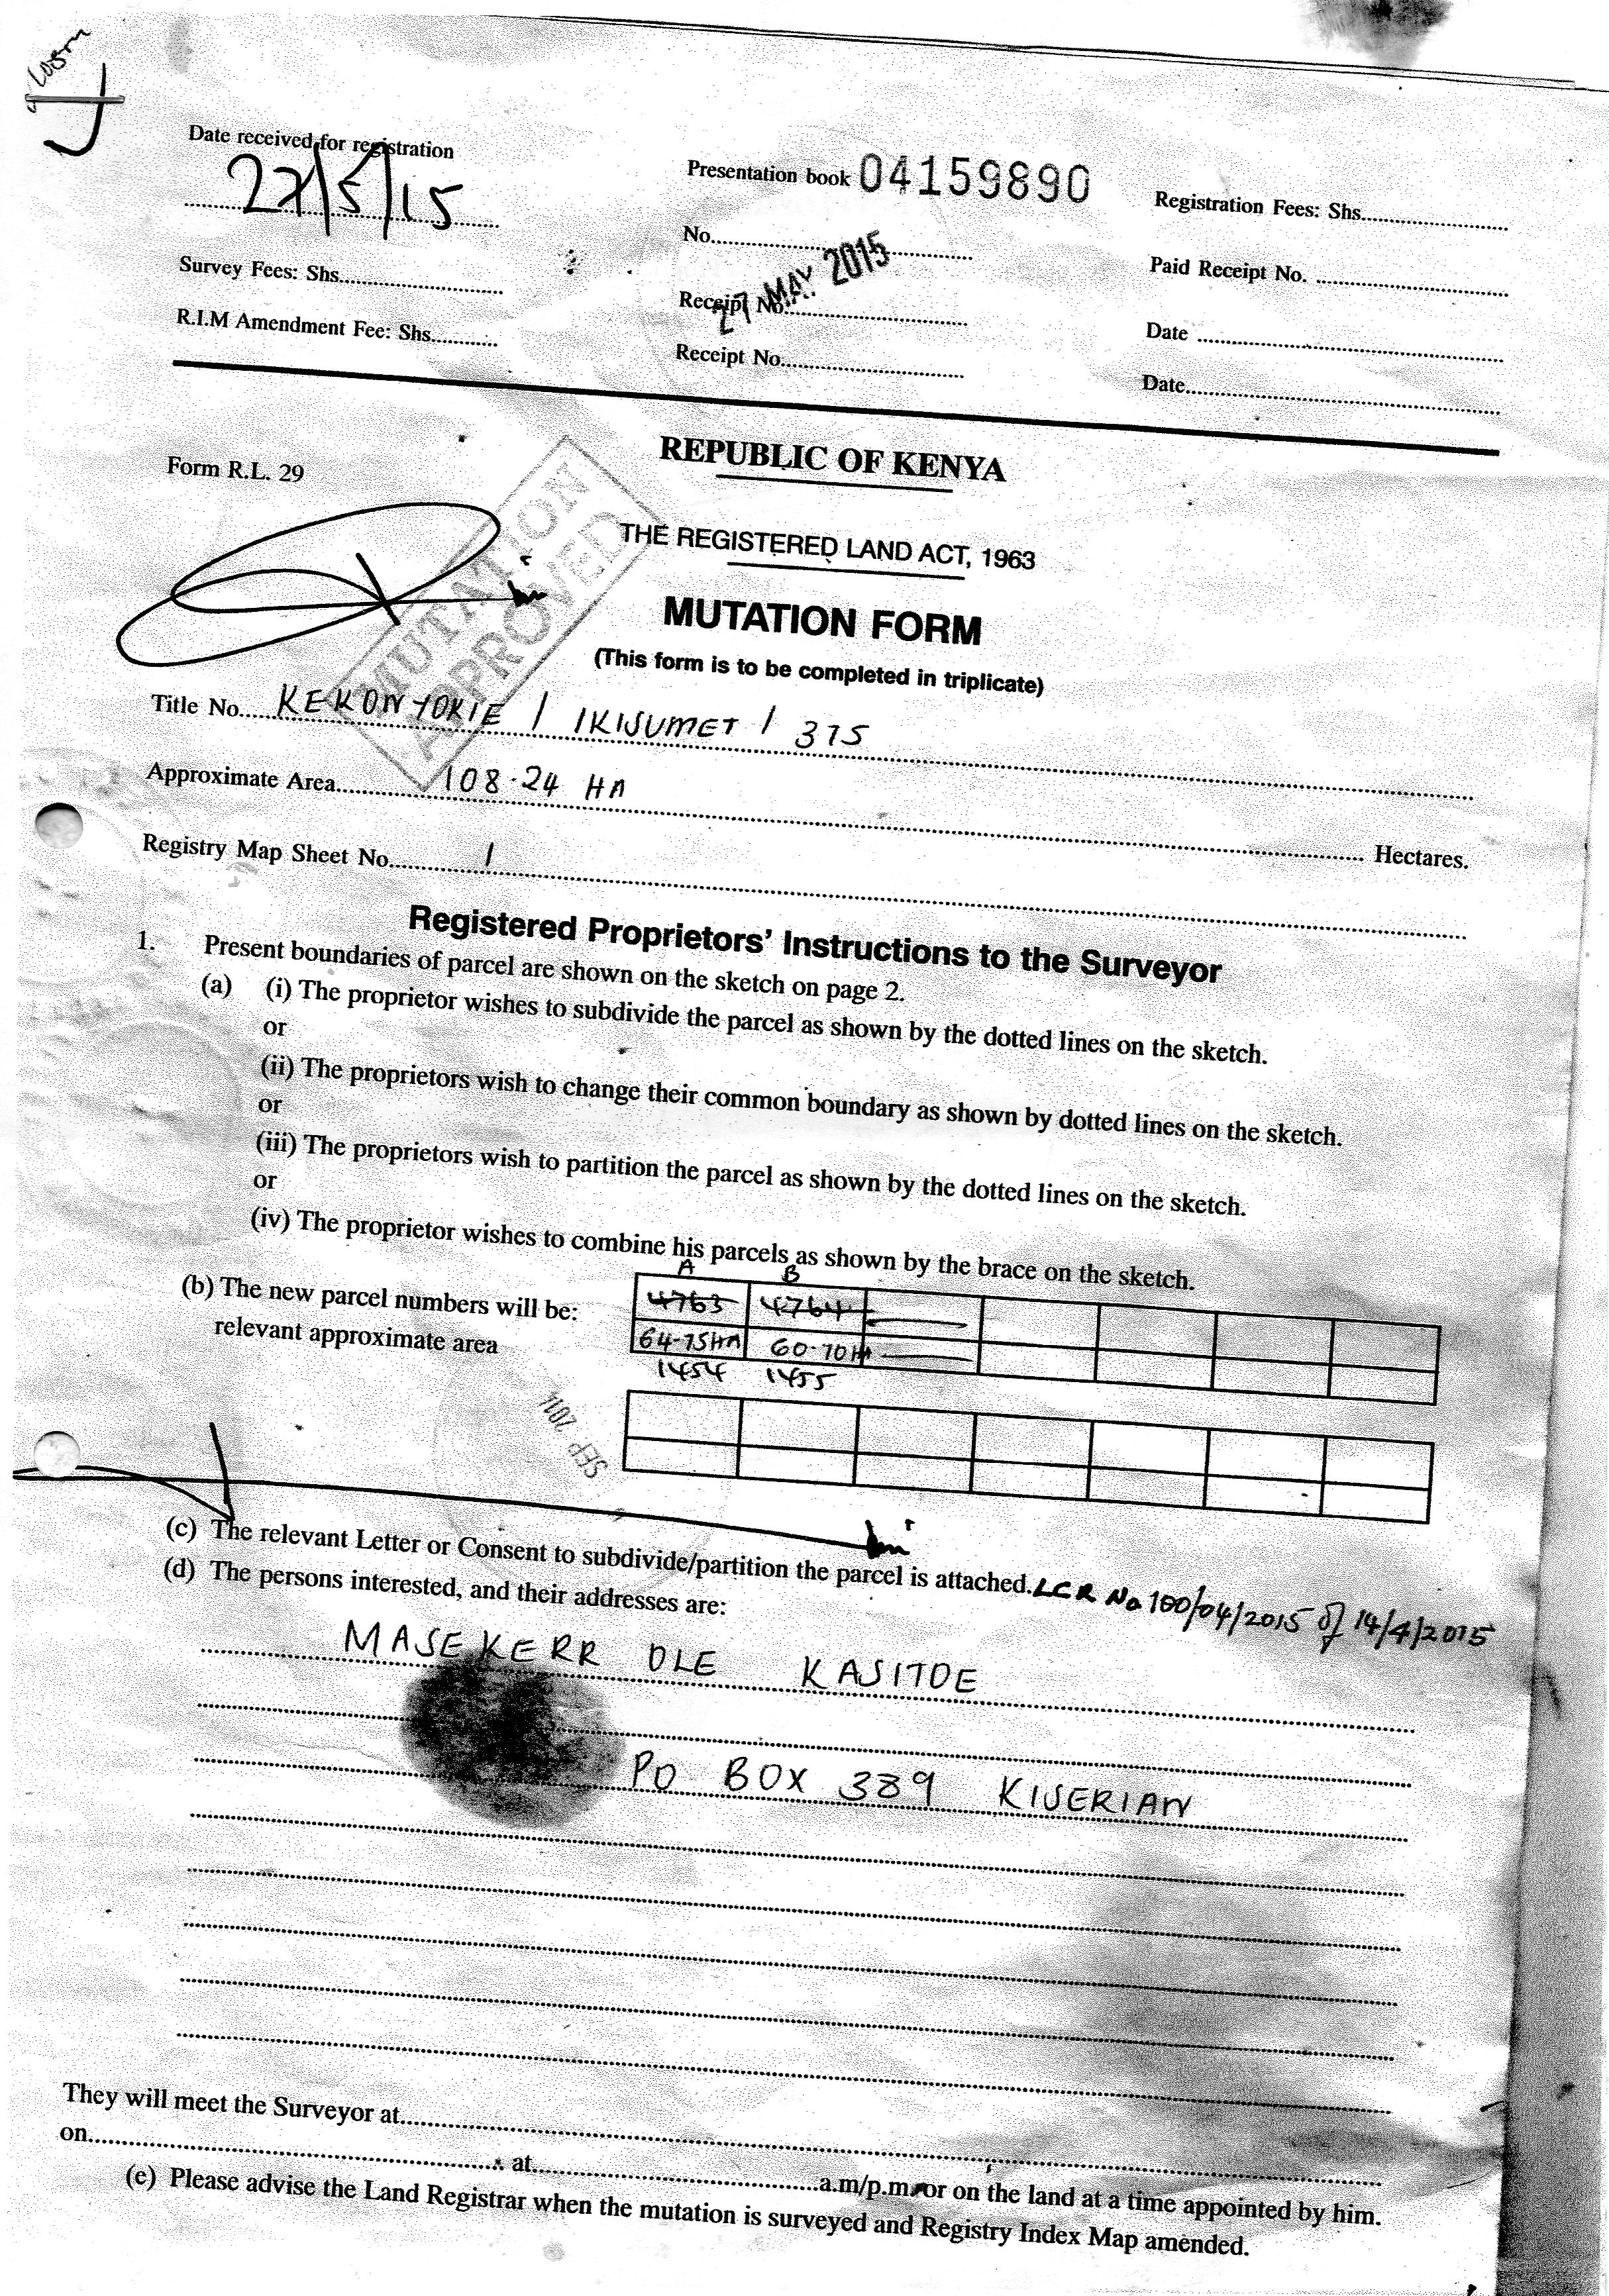 Date received for registration
27/5/15
Presentation book 04159890
Registration Fees: Shs
No
27 MAY 2015
Survey Fees: Shs
Receipt No
Paid Receipt No.
R.I.M Amendment Fee: Shs
Receipt No
Date
Date
Form R.L. 29
REPUBLIC OF KENYA
THE REGISTERED LAND ACT, 1963
MUTATION FORM
MUTATION
APPROVED
(This form is to be completed in triplicate)
Title No KEKONYOKIE / IKISUMET / 375
Approximate Area 108.24 HA Hectares.
Registry Map Sheet No 1
Registered Proprietors' Instructions to the Surveyor
1. Present boundaries of parcel are shown on the sketch on page 2.
(a) (i) The proprietor wishes to subdivide the parcel as shown by the dotted lines on the sketch.
or
(ii) The proprietors wish to change their common boundary as shown by dotted lines on the sketch.
or
(iii) The proprietors wish to partition the parcel as shown by the dotted lines on the sketch.
or
(iv) The proprietor wishes to combine his parcels as shown by the brace on the sketch.
A B
(b) The new parcel numbers will be: 4763 4764
relevant approximate area 64.75HA 60.70HA
1454 1455
SEP 2011
(c) The relevant Letter or Consent to subdivide/partition the parcel is attached. LCR No 100/04/2015 of 14/4/2015
(d) The persons interested, and their addresses are:
MASEKERR OLE KASITOE
PO BOX 389 KISERIAN
They will meet the Surveyor at
on at a.m/p.m. or on the land at a time appointed by him.
(e) Please advise the Land Registrar when the mutation is surveyed and Registry Index Map amended.